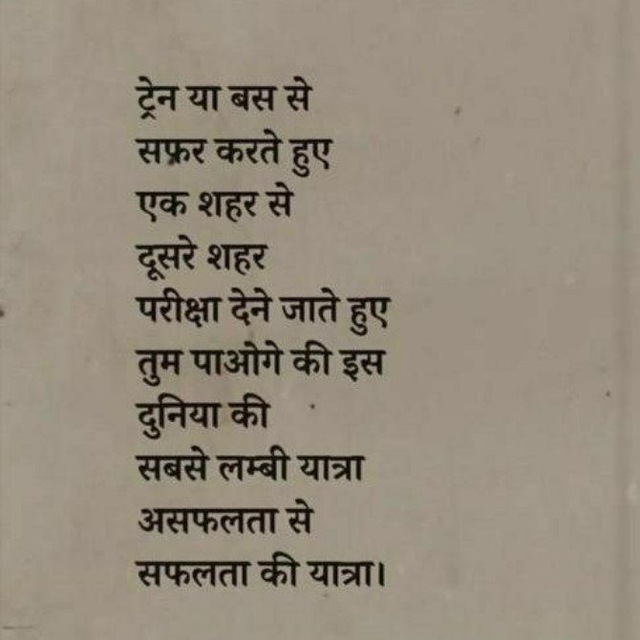 ट्रेन या बस से
सफ़र करते हुए
एक शहर से
दूसरे शहर
परीक्षा देने जाते हुए
तुम पाओगे की इस
दुनिया की
सबसे लम्बी यात्रा
असफलता से
सफलता की यात्रा।